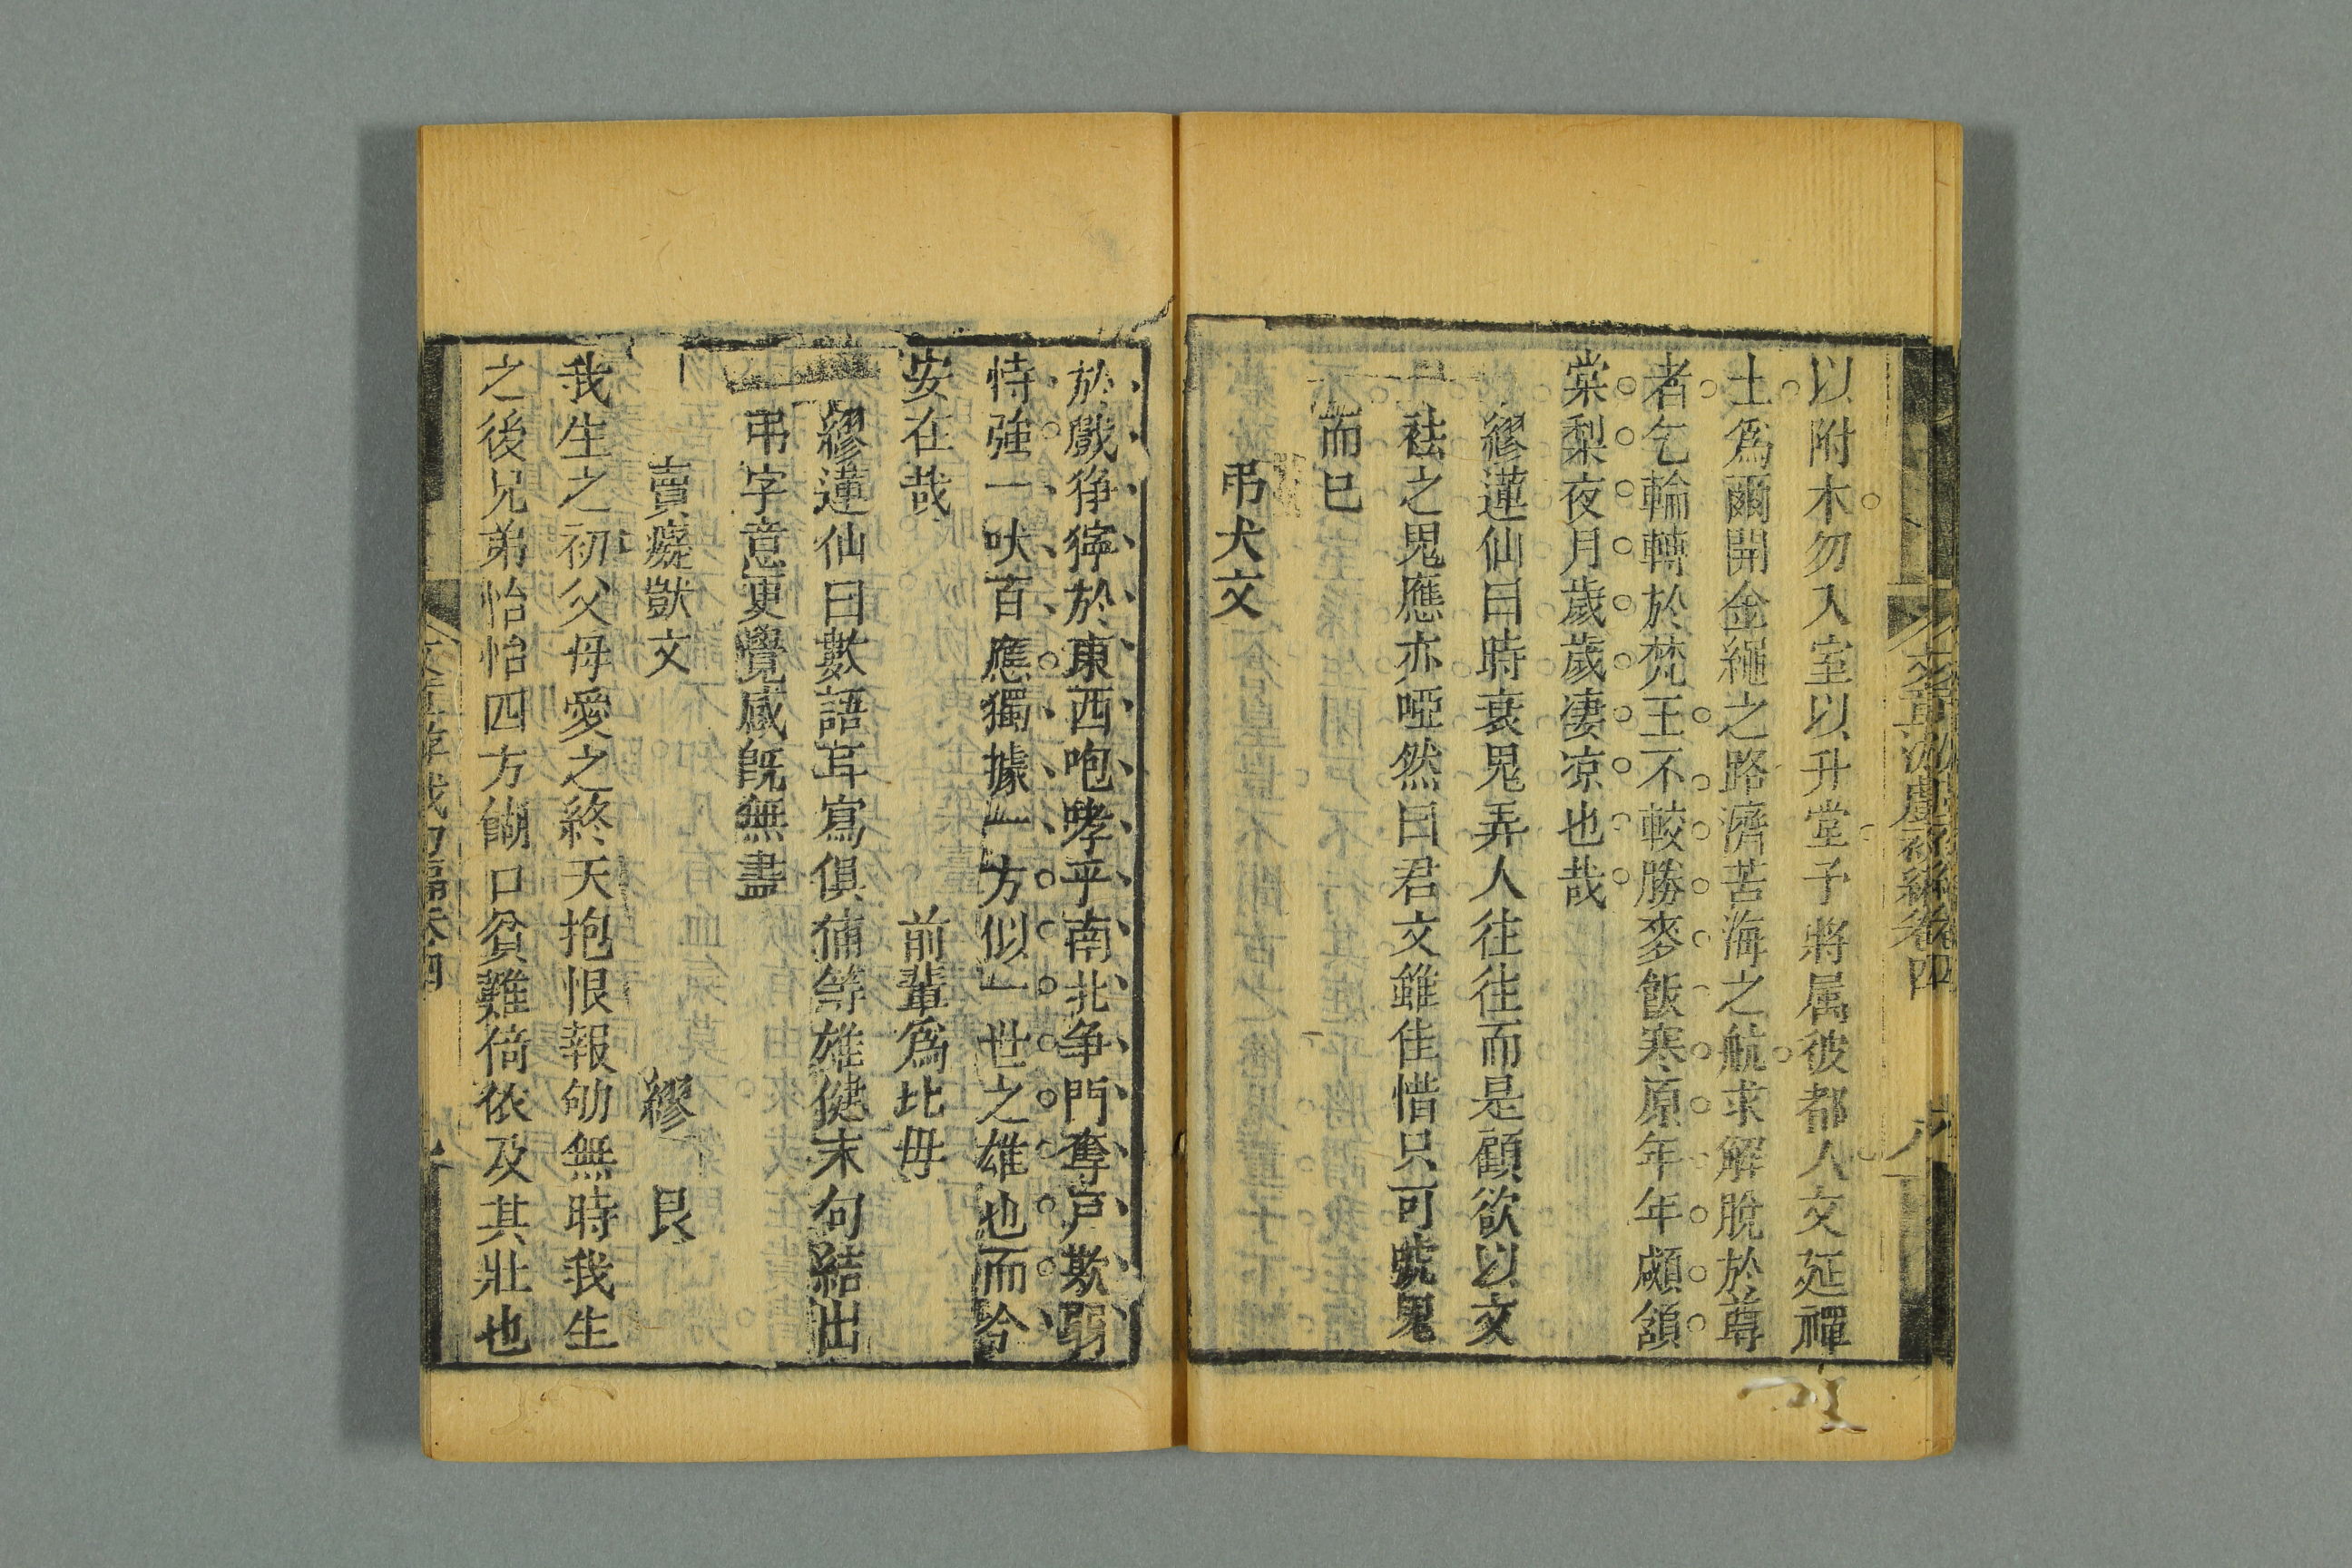 以附木勿入室以升堂予將属彼都人文延禪
土爲爾開金繩之路濟苦海之航求解脫於尊
者乞輪轉於梵王不較勝麥飯寒原年年顑頷
棠梨夜月歲歲凄凉也哉
繆蓮仙曰時衰鬼弄人往往而是顧欲以文
袪之鬼應亦啞然曰君文雖佳惜只可號鬼
而已
弔犬文
於戲猙獰於東西咆哮乎南北争門奪戸欺弱
恃強一吠百應獨據一方似一世之雄也而今
安在哉
前輩爲比毋
繆蓮仙曰數語耳寫俱獳等雄健末句結出
弔字意更覺感旣無盡
賣癡獃文
繆艮
我生之初父母愛之終天抱恨報劬無時我生
之後兄弟怡怡四方餬口貧難倚依及其壯也
卷四